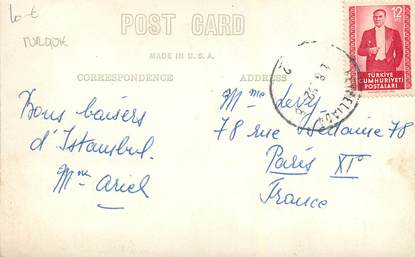 6-€
TURQUIE
POST CARD
MADE IN U.S.A.
CORRESPONDENCE
ADDRESS
12
TÜRKİYE
CUMHURİYETİ
POSTALARI
Bons baisers
d'Istambul.
Mme Ariel
Mme Levy
78 rue 78
Paris XIe
France